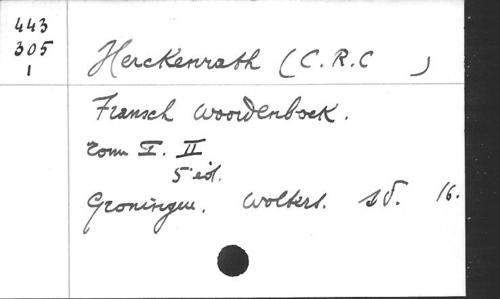 443
305
1
Herckenrath (C.R.C )
Fransch woordenboek.
tom I. II
5 éd.
Groningen. Wolters. sd. 16.